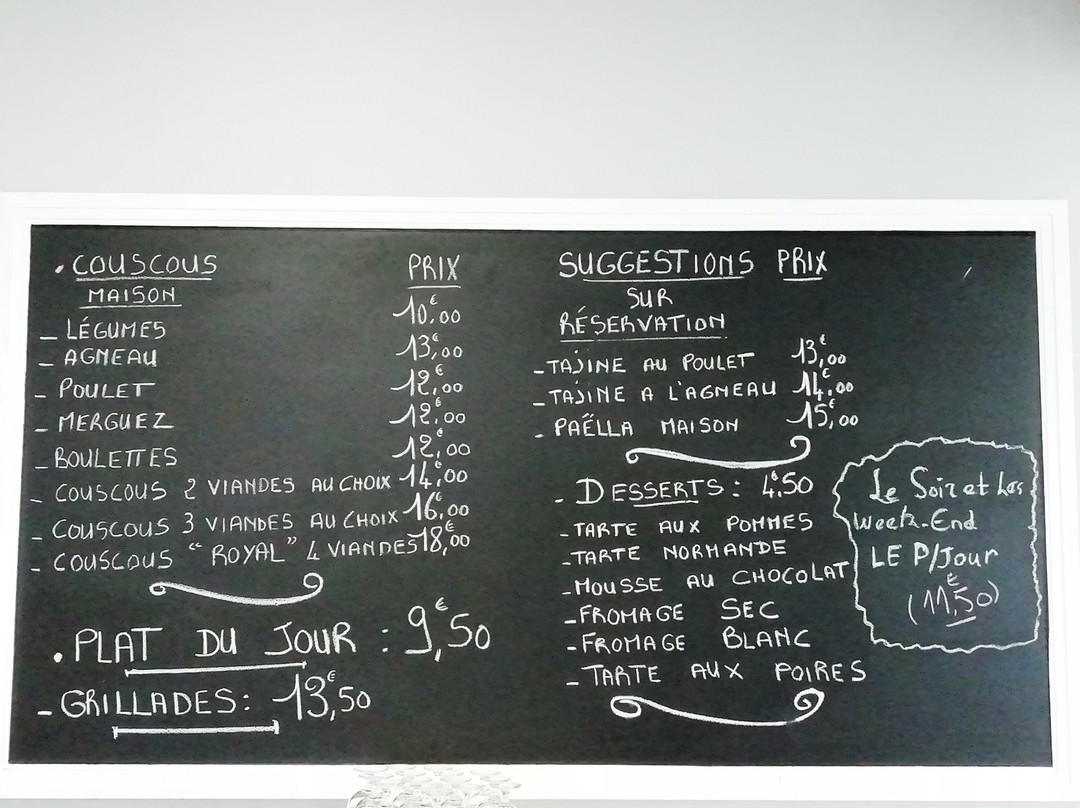 • COUSCOUS PRIX
MAISON
- LÉGUMES 10€,00
- AGNEAU 13€,00
- POULET 12€,00
- MERGUEZ 12€,00
- BOULETTES 12€,00
- COUSCOUS 2 VIANDES AU CHOIX 14€,00
- COUSCOUS 3 VIANDES AU CHOIX 16€,00
- COUSCOUS "ROYAL" 4 VIANDES 18€,00
• PLAT DU JOUR : 9€,50
- GRILLADES : 13€,50
SUGGESTIONS PRIX
SUR
RÉSERVATION
- TAJINE AU POULET 13€,00
- TAJINE A L'AGNEAU 14€,00
- PAËLLA MAISON 15€,00
- DESSERTS : 4€,50
- TARTE AUX POMMES
- TARTE NORMANDE
- MOUSSE AU CHOCOLAT
- FROMAGE SEC
- FROMAGE BLANC
- TARTE AUX POIRES
Le Soir et Les
Week-End
LE P/Jour
(11€,50)